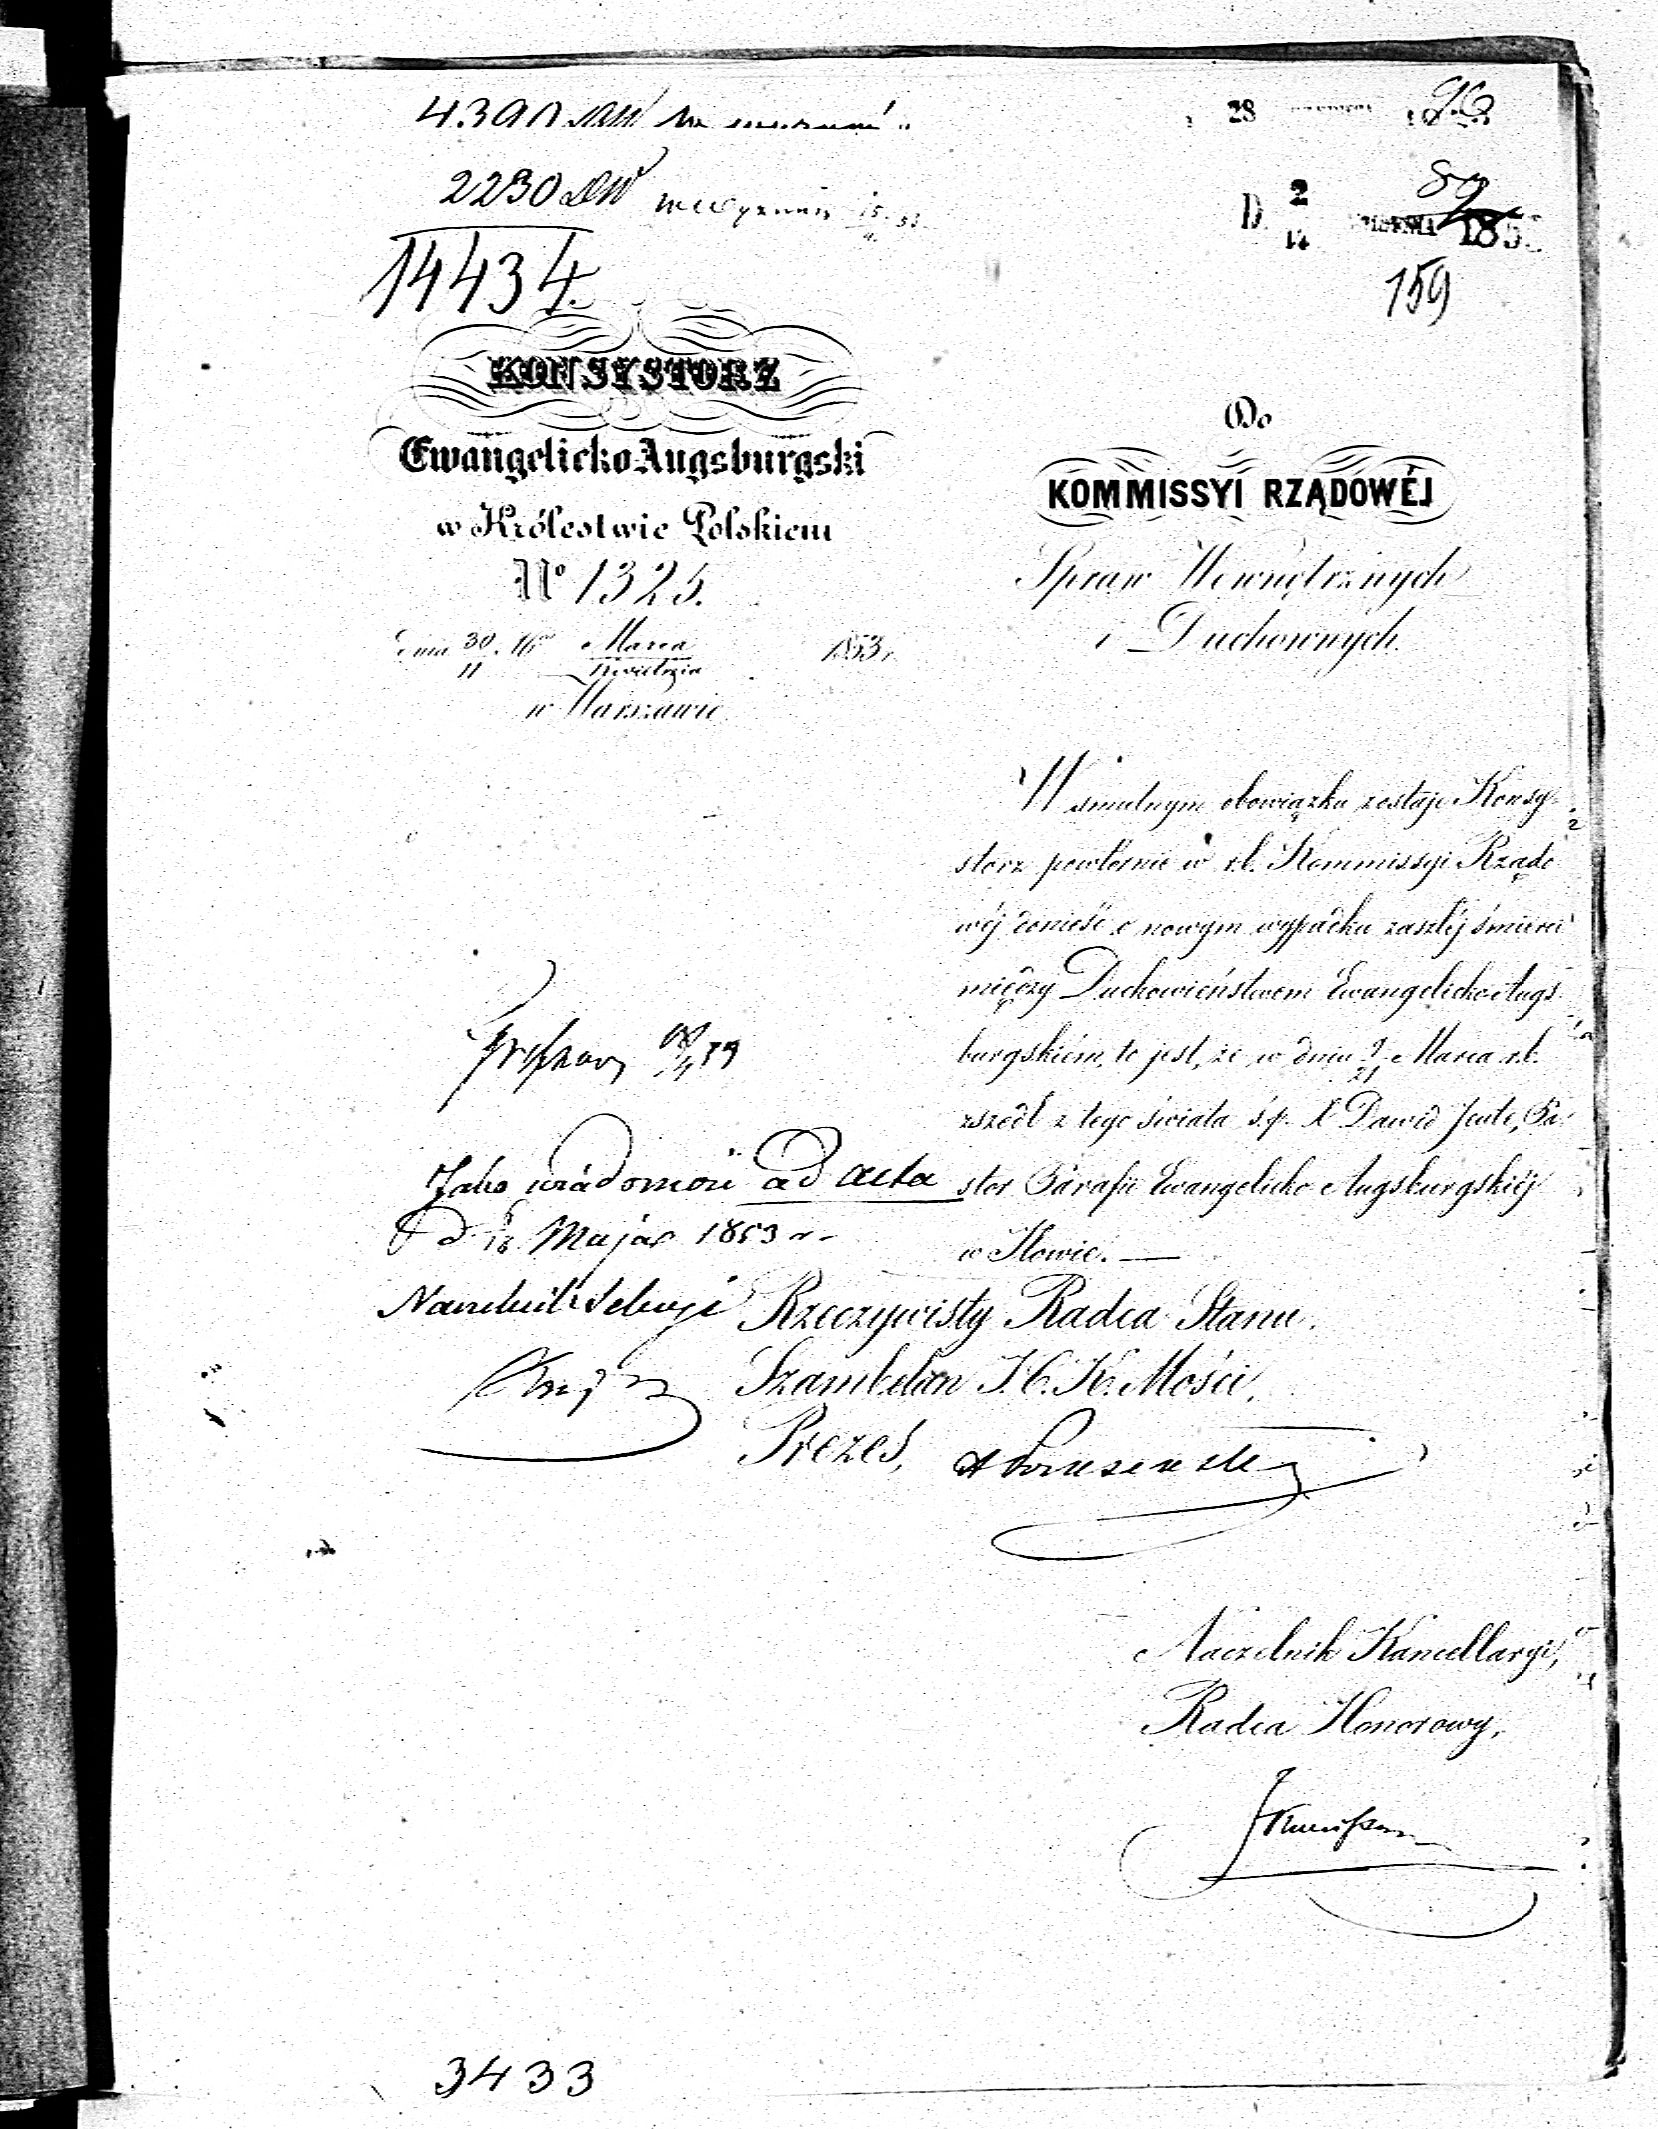 28
96
2230
D. 2
14
185
89
14434.
159
KONSYSTORZ
Ewangelicko Augsburgski
w Królestwie Polskiem
No 1325.
dnia 30. Marca 1853 r.
11 Kwietnia
w Warszawie
Do
KOMMISSYI RZĄDOWÉJ
Spraw Wewnętrznych
i Duchownych.
W smutnym obowiązku zostaje Konsy-
storz powtórnie w r.b. Kommissyi Rządo
wéj donieść o nowym wypadku zaszłéj śmierci
między Duchowieństwem Ewangelicko Augs-
burgskiém, to jest, że w dniu 9/21 Marca r.b.
zszedł z tego świata ś.p. X Dawid Jente, Pa-
stor Parafii Ewangelicko Augsburgskiéj
w Iłowie. —
Jako wiadomość ad acta
d. Maja 1853 r.
Naczelnik Sekcyi
Rzeczywisty Radca Stanu.
Szambelan J. C. K. Mości,
Prezes,
Naczelnik Kancellaryi,
Radca Honorowy,
3433